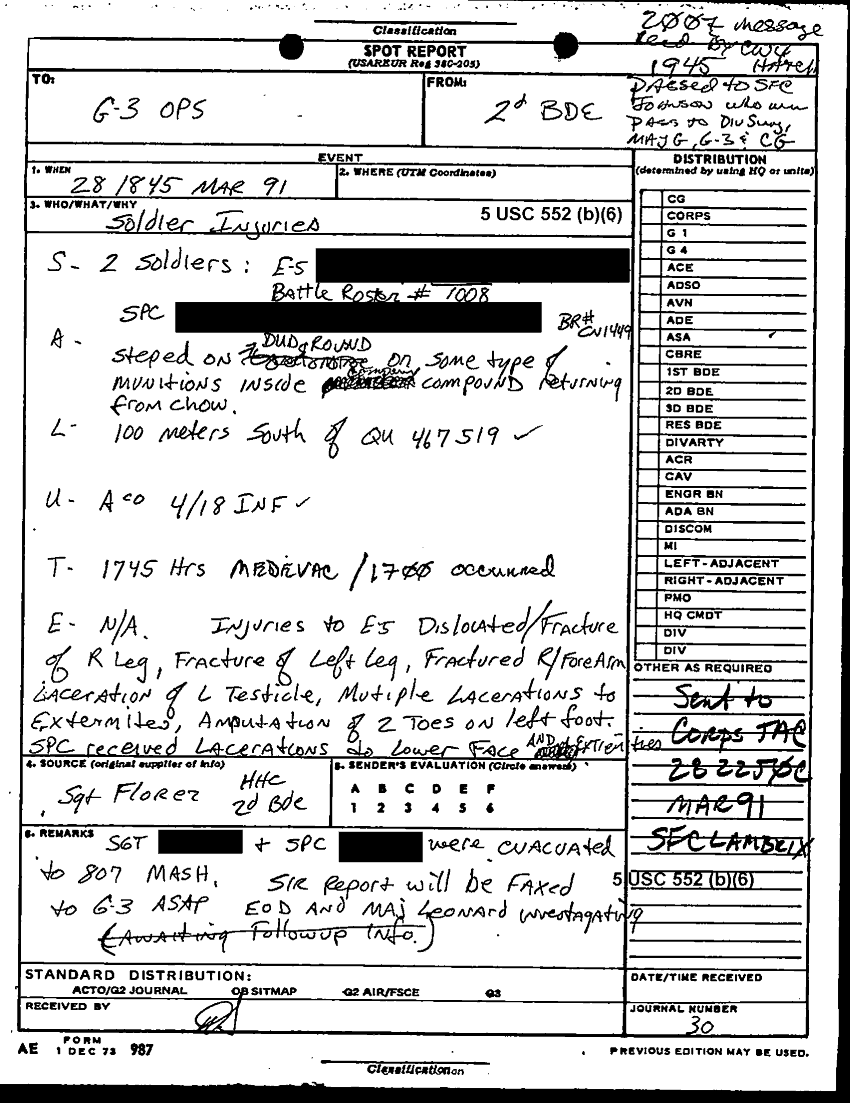 Classification
SPOT REPORT
(USAREUR Reg 380-205)
2007 message
recd By CW4
1945 HATCH
PASSED to SFC
Johnson who
PASS to Div Surg,
MAJ G, G-3 & CG
TO:
G-3 OPS
FROM:
2d BDE
EVENT
1. WHEN
28 1845 MAR 91
2. WHERE (UTM Coordinates)
3. WHO/WHAT/WHY
Soldier Injuries
5 USC 552 (b)(6)
S- 2 Soldiers: E-5
Battle Roster # 1008
SPC
BR#
CN1449
A-
DUD ROUND
steped on or some type of
munitions inside company compound returning
from chow.
L- 100 meters South of QU 467519 ✓
U- A co 4/18 INF ✓
T- 1745 Hrs MEDEVAC /1700 occurred
E- N/A. Injuries to E-5 Dislocated/Fracture
of R Leg, Fracture of Left Leg, Fractured R/ForeArm
Laceration of L Testicle, Mutiple Lacerations to
Extermites, Amputation of 2 Toes on left foot.
SPC received Lacerations to Lower Face AND Extremities
4. SOURCE (original supplier of info)
Sgt Florez HHC
2d Bde
5. SENDER'S EVALUATION (Circle answers)
A B C D E F
1 2 3 4 5 6
6. REMARKS
SGT + SPC were evacuated
to 807 MASH. SIR Report will be FAXED
5 USC 552 (b)(6)
to G-3 ASAP EOD AND MAJ Leonard investagating
(Awaiting Followup Info.)
STANDARD DISTRIBUTION:
ACTO/G2 JOURNAL OB SITMAP G2 AIR/FSCE G3
RECEIVED BY
DISTRIBUTION
(determined by using HQ or units)
CG
CORPS
G 1
G 4
ACE
ADSO
AVN
ADE
ASA
CBRE
1ST BDE
2D BDE
3D BDE
RES BDE
DIVARTY
ACR
CAV
ENGR BN
ADA BN
DISCOM
MI
LEFT-ADJACENT
RIGHT-ADJACENT
PMO
HQ CMDT
DIV
DIV
OTHER AS REQUIRED
Sent to
Corps TAC
28 2250C
MAR 91
SFC LAMBRIX
DATE/TIME RECEIVED
JOURNAL NUMBER
30
AE FORM 1 DEC 73 987
PREVIOUS EDITION MAY BE USED.
Classification